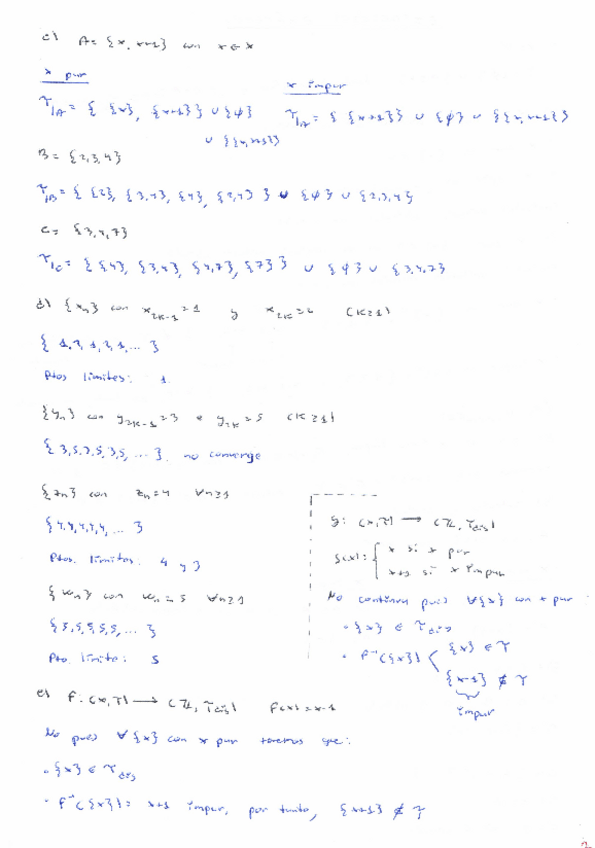 c) A = {x, x+1} con x ∈ X
x par
x impar
τ|A = { {x}, {x+1} } ∪ {∅} ∪ {{x, x+1}}
τ|A = { {x+1} } ∪ {∅} ∪ {{x, x+1}}
B = {2,3,4}
τ|B = { {2}, {3,4}, {4}, {2,4} } ∪ {∅} ∪ {2,3,4}
C = {3,4,7}
τ|C = { {4}, {3,4}, {4,7}, {7} } ∪ {∅} ∪ {3,4,7}
d) {xn} con x2K-1 = 1 y x2K = (K≥1)
{ 1, , 1, , 1, ... }
Ptos límites: 1
{yn} con y2K-1 = 3 e y2K = 5 (K≥1)
{ 3,5,3,5,3,5, ... } no converge
{zn} con zn = 4 ∀n≥1
{4,4,4,4,4, ... }
Ptos. límites: 4 y 3
{wn} con wn = 5 ∀n≥1
{5,5,5,5,5, ... }
Pto. límite: 5
g: (X,τ) → (Z, τdis)
g(x) = { x si x par
x+1 si x impar
No continua pues ∀{x} con x par
· {x} ∈ τdis
· f⁻¹({x}) < {x} ∈ τ
{x-1} ∉ τ
impar
e) f: (X,τ) → (Z, τdis) f(x) = x-1
No pues ∀{x} con x par tenemos que:
· {x} ∈ τdis
· f⁻¹({x}) = x+1 impar, por tanto, {x+1} ∉ τ